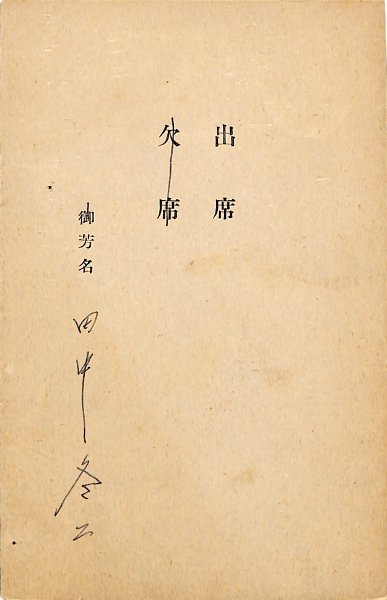 出席
欠席
御芳名
田中冬二